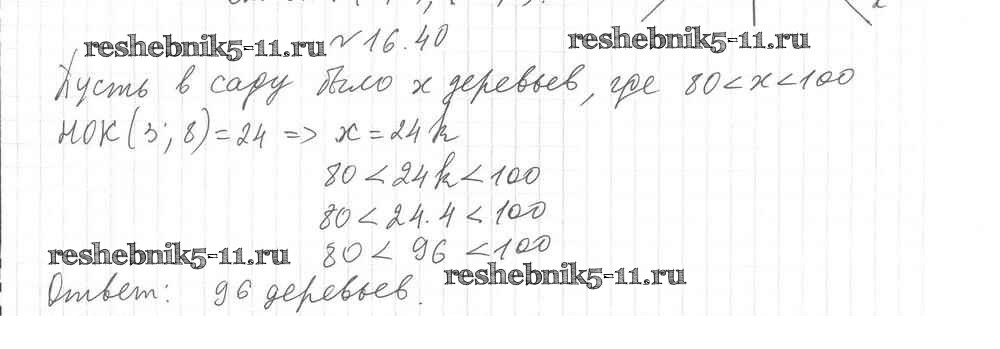 reshebnik5-11.ru №16.40 reshebnik5-11.ru
Пусть в саду было x деревьев, где 80<x<100
НОК(3; 8)=24 => x=24k
80<24k<100
80<24·4<100
reshebnik5-11.ru 80<96<100
reshebnik5-11.ru
Ответ: 96 деревьев.